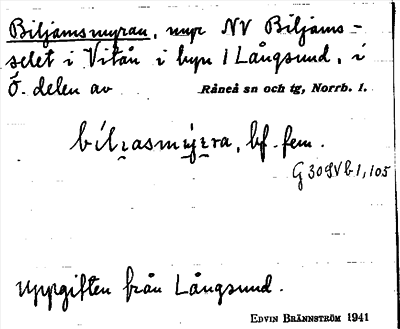 Biljamsmyran, myr NV Biljams-
selet i Vitån i byn 1 Långsund, i
Ö. delen av Råneå sn och tg, Norrb. l.
bf. fem.
G 3095 Vb 1, 105
Uppgiften från Långsund.
EDVIN BRÄNNSTRÖM 1941